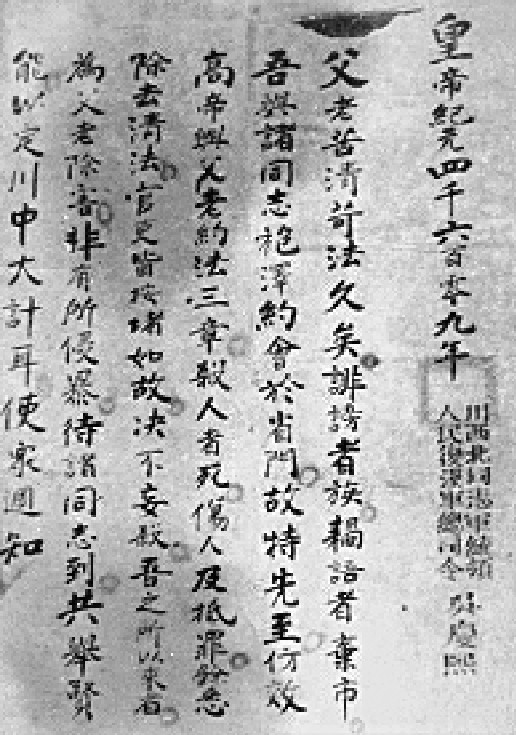 皇帝紀元四千六百零九年
川西北同志軍統領
人民復漢軍總司令
吳慶熙
父老苦清苛法久矣誹謗者族耦語者棄市
吾與諸同志袍澤約會於省門故特先至仿效
高帝與父老約法三章殺人者死傷人及抵罪餘悉
除去清法官吏皆按堵如故決不妄殺吾之所以來者
為父老除害非有所侵暴待諸同志到共舉賢
能以定川中大計耳使眾週知